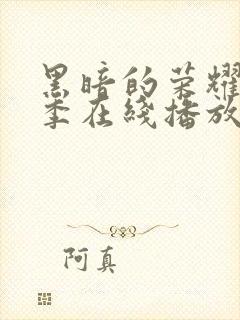 黑暗的荣耀
季在线播放
阿真